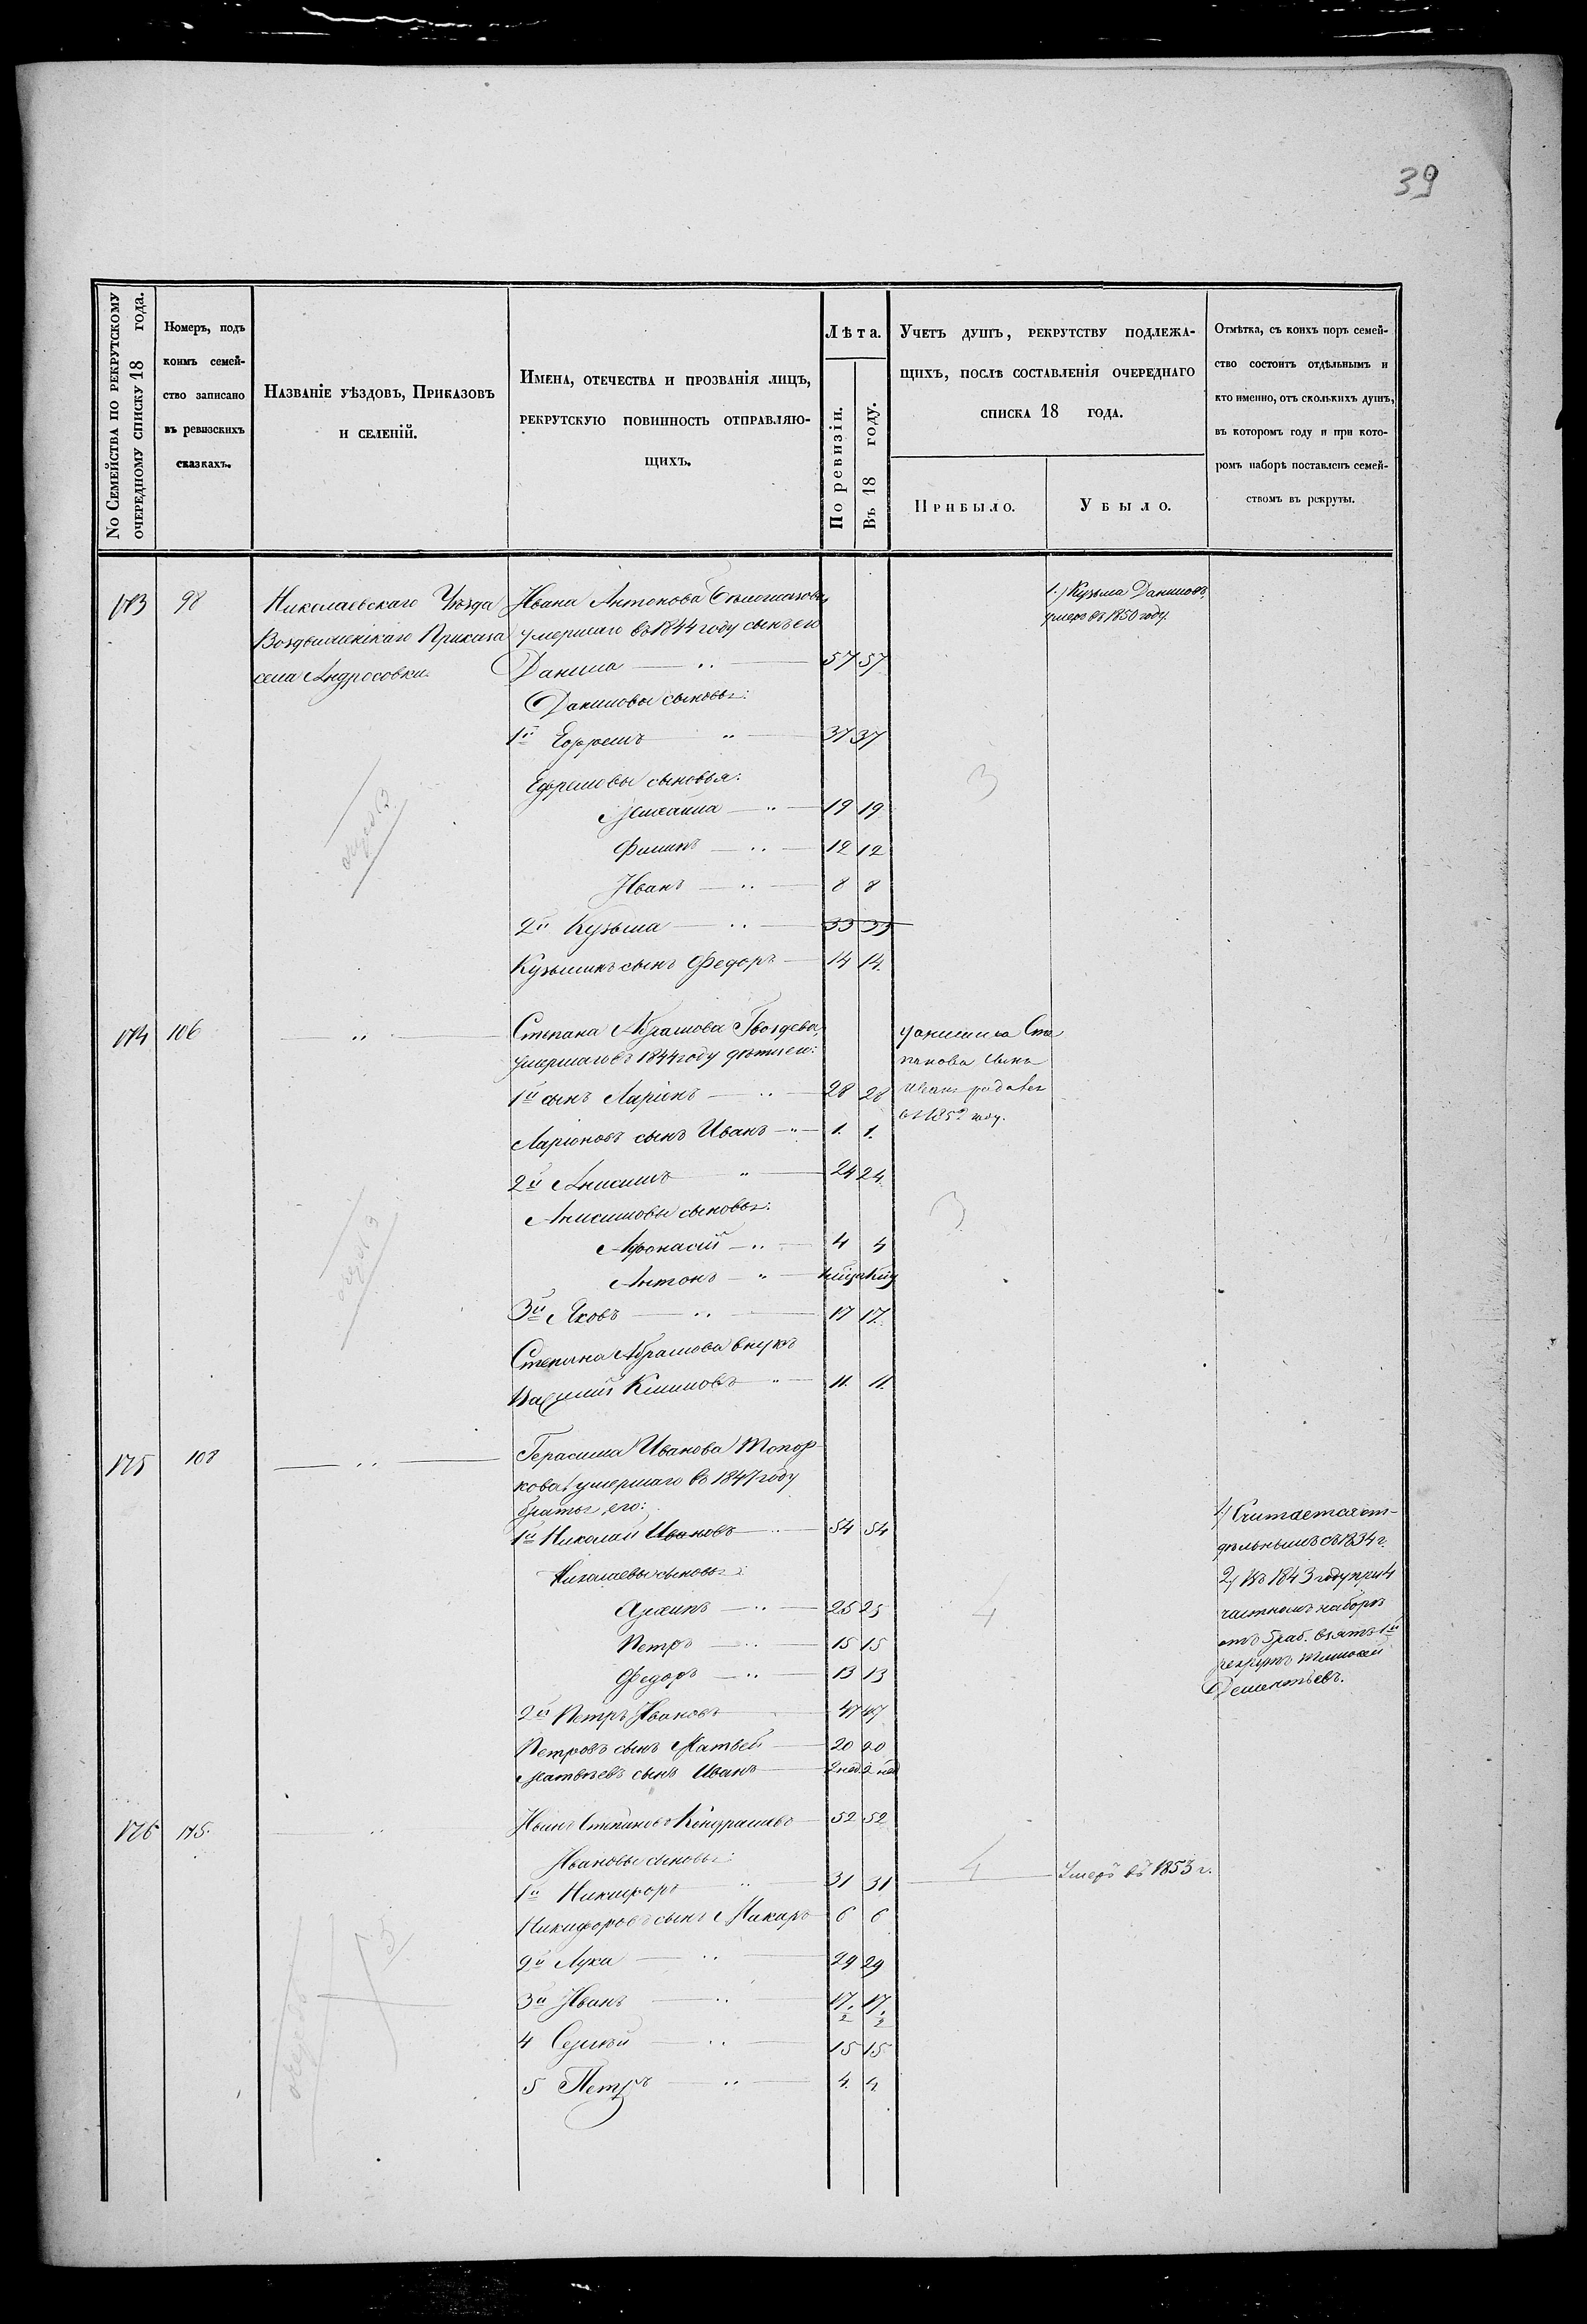 39
№ Семейства по рекрутскому очередному списку 18 года.
Номеръ, подъ коимъ семейство записано въ ревизскихъ сказкахъ.
Названіе уѣздовъ, Приказовъ и селеній.
Имена, отечества и прозванія лицъ, рекрутскую повинность отправляющихъ.
Лѣта.
По ревизіи.
Въ 18 году.
Учетъ душъ, рекрутству подлежащихъ, послѣ составленія очереднаго списка 18 года.
Прибыло.
Убыло.
Отмѣтка, съ коихъ поръ семейство состоитъ отдѣльнымъ и кто именно, отъ сколькихъ душъ, въ которомъ году и при которомъ наборѣ поставленъ семействомъ въ рекруты.
173 98 Николаевскаго Уѣзда Ивана Антонова
Воздвиженскаго Приказа умершаго въ 1844 году сынъ его
села Андросовки Данила 57 57
1.) Кузьма Даниловъ,
умеръ въ 1850 году.
Даниловы сыновья:
1й Ефремъ 37 37
Ефремовы сыновья:
Михаила 19 19
3
Филипъ 12 12
Иванъ 8 8
2й Кузьма 33 33
Кузьминъ сынъ Федоръ 14 14
174 106 Степана Абрамова Гвоздева,
умершаго въ 1844 году дѣти его:
1й сынъ Ларіонъ 28 28
Ларіоновъ сынъ Иванъ 1. 1.
2й Анисимъ 24 24
Анисимовы сыновья:
Афонасій 4 4
3
Антонъ
3й Яковъ 17 17
Степана Абрамова внукъ
Климовъ 11. 11.
175 108 Герасима Иванова Топор-
кова умершаго въ 1847 году
братья его:
1й Николай Ивановъ 54 54
Николаевы сыновья:
Архипъ 25 25
4
Петръ 15 15
Федоръ 13 13
2й Петръ Ивановъ 47 47
Петровъ сынъ Матвей 20 20
Матвѣевъ сынъ Иванъ 2 нед 2 нед
1) Считается от-
дѣльнымъ съ 1834 г.
2) Въ 1843 году при 4
частномъ наборѣ
взятъ 1й
рекрутъ Тимофей
Дементьевъ.
176 175. Иванъ Степановъ Кондрашевъ 52 52
Ивановы сыновья:
1й Никифоръ 31 31
4 Умеръ въ 1853 г.
Никифоровъ сынъ Макаръ 6 6
2й Лука 29 29
5
3й Иванъ 17 1/2 17 1/2
4 Сергѣй 15 15
5 Петръ 4. 4